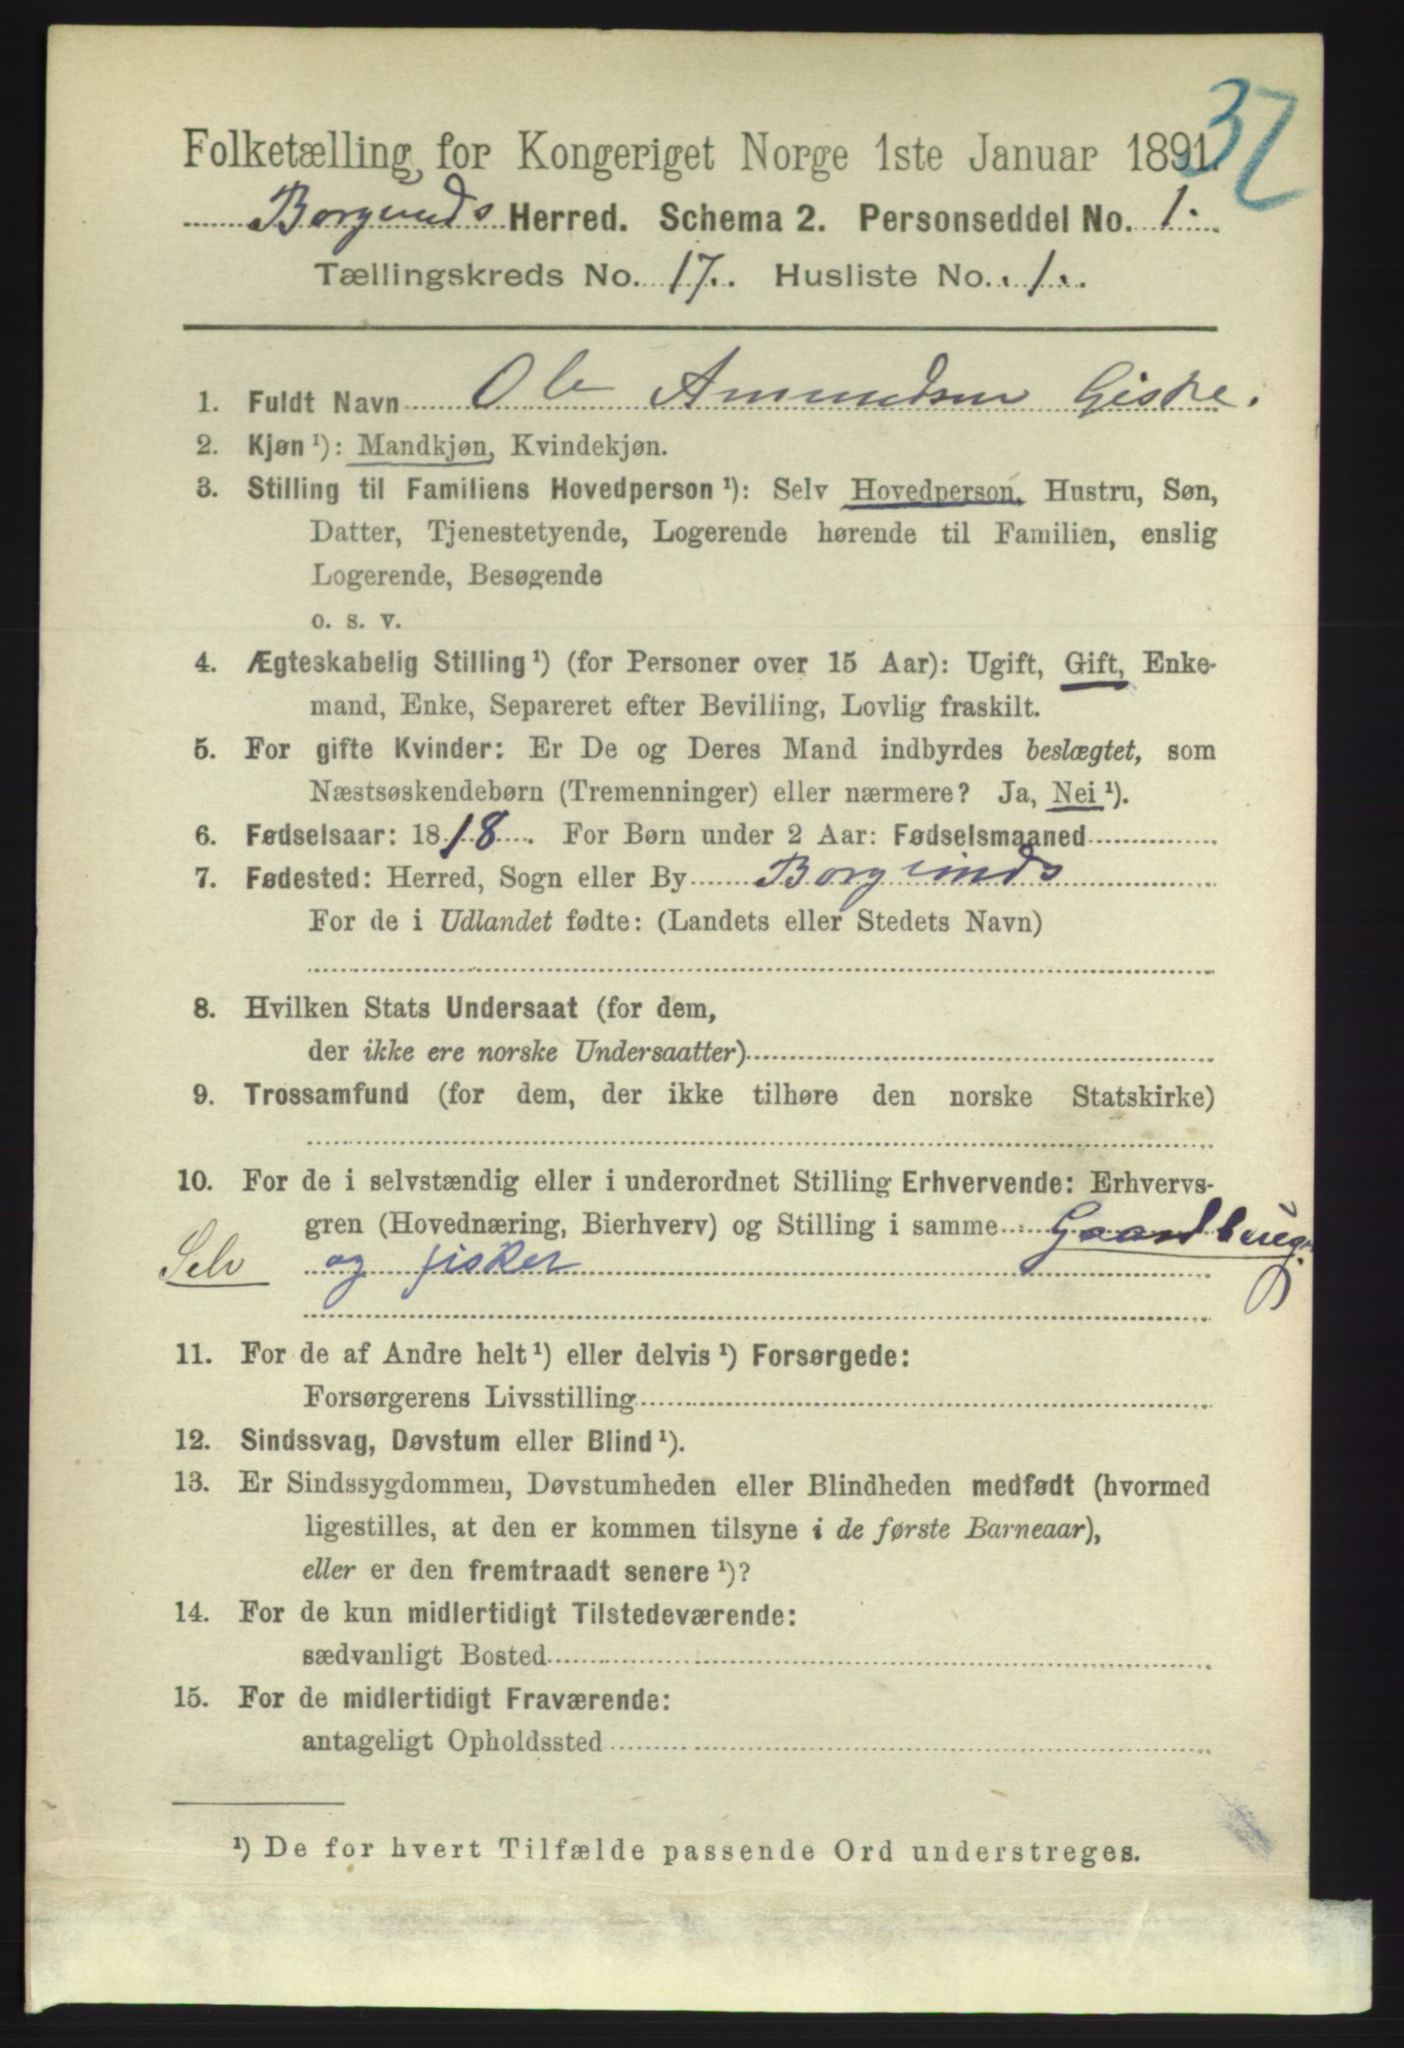 32
Folketælling for Kongeriget Norge 1ste Januar 1891.
Borgunds Herred. Schema 2. Personseddel No. 1.
Tællingskreds No. 17. Husliste No. 1.
1. Fuldt Navn Ole Amundsen Giske.
2. Kjøn ¹): Mandkjøn, Kvindekjøn.
3. Stilling til Familiens Hovedperson ¹): Selv Hovedperson, Hustru, Søn,
Datter, Tjenestetyende, Logerende hørende til Familien, enslig
Logerende, Besøgende
o. s. v.
4. Ægteskabelig Stilling ¹) (for Personer over 15 Aar): Ugift, Gift, Enke-
mand, Enke, Separeret efter Bevilling, Lovlig fraskilt.
5. For gifte Kvinder: Er De og Deres Mand indbyrdes beslægtet, som
Næstsøskendebørn (Tremenninger) eller nærmere? Ja, Nei ¹).
6. Fødselsaar: 1818. For Børn under 2 Aar: Fødselsmaaned
7. Fødested: Herred, Sogn eller By Borgunds
For de i Udlandet fødte: (Landets eller Stedets Navn)
8. Hvilken Stats Undersaat (for dem,
der ikke ere norske Undersaatter)
9. Trossamfund (for dem, der ikke tilhøre den norske Statskirke)
10. For de i selvstændig eller i underordnet Stilling Erhvervende: Erhvervs-
gren (Hovednæring, Bierhverv) og Stilling i samme Gaardbrug
Selv og fisker
11. For de af Andre helt ¹) eller delvis ¹) Forsørgede:
Forsørgerens Livsstilling
12. Sindssvag, Døvstum eller Blind ¹).
13. Er Sindssygdommen, Døvstumheden eller Blindheden medfødt (hvormed
ligestilles, at den er kommen tilsyne i de første Barneaar),
eller er den fremtraadt senere ¹)?
14. For de kun midlertidigt Tilstedeværende:
sædvanligt Bosted
15. For de midlertidigt Fraværende:
antageligt Opholdssted
¹) De for hvert Tilfælde passende Ord understreges.